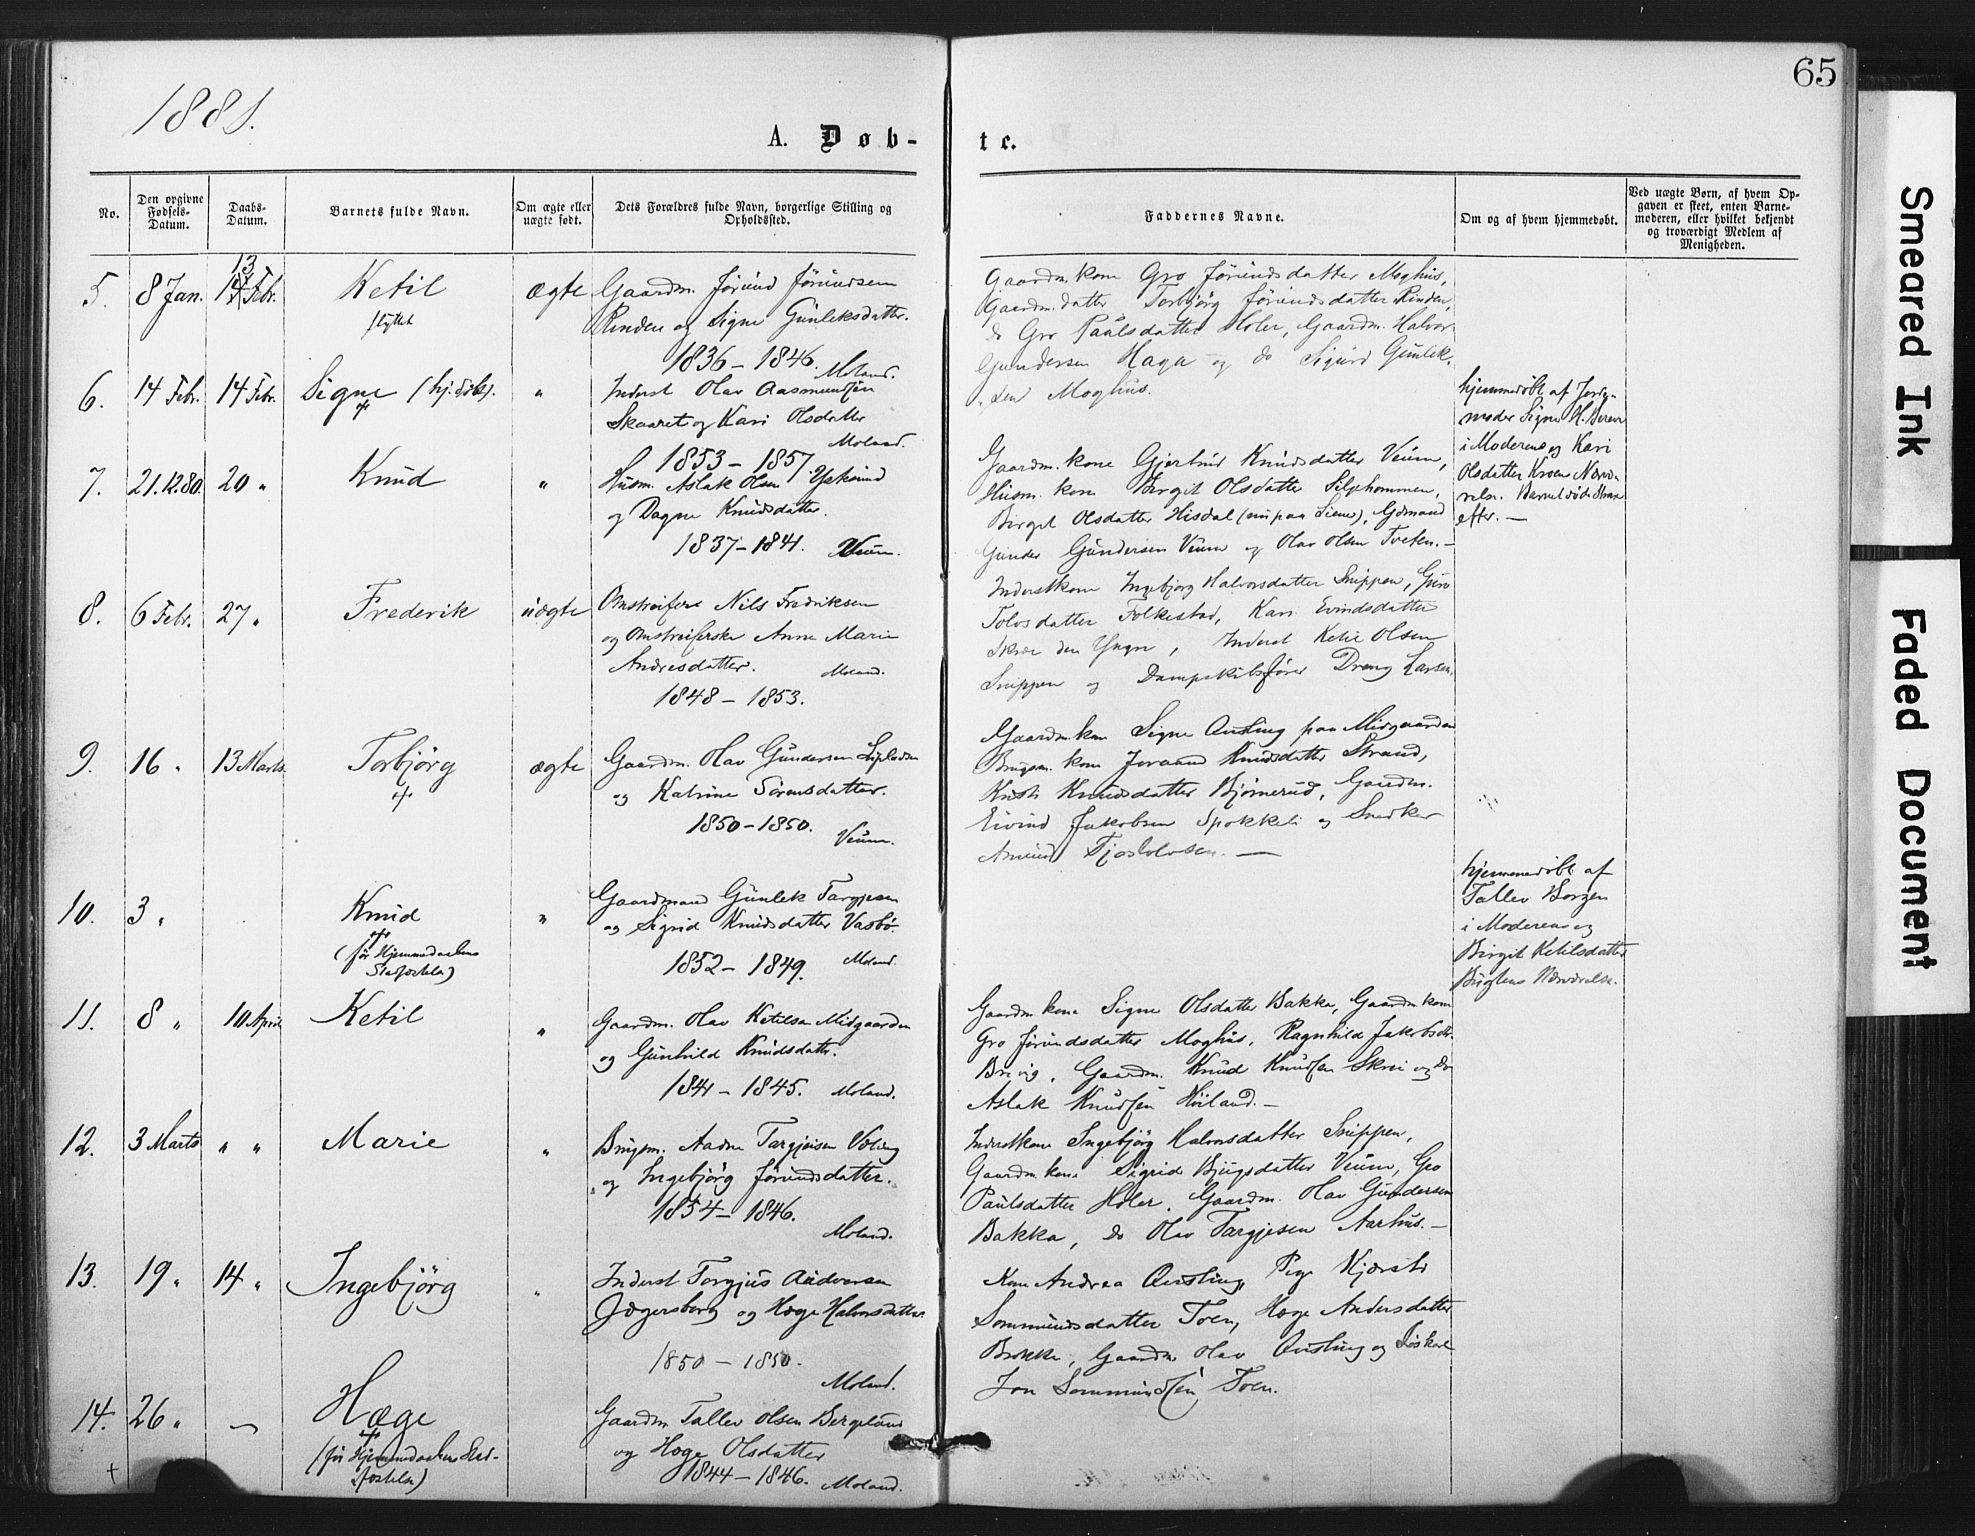 65
1881.
A. Døb-
te.
No.
Den opgivne Fødsels-Datum.
Daabs-Datum.
Barnets fulde Navn.
Om ægte eller uægte født.
Dets Forældres fulde Navn, borgerlige Stilling og Opholdssted.
Faddernes Navne.
Om og af hvem hjemmedøbt.
Ved uægte Børn, af hvem Opgaven er skeet, enten Barnemoderen, eller hvilket bekjendt og troværdigt Medlem af Menigheden.
5. 8 Jan. 13 Febr. Ketil ægte Gaardm. Jørund Jørundsen
flyttet
Rinden og Signe Gunleksdatter.
1836 - 1846. Moland.
Gaardm. kone Gro Jørundsdatter Moghus,
Gaardm. datter Torbjørg Jørundsdatter Rinden,
do Gro Paulsdatter Holer, Gaardm. Halvor
Gundersen Haga og do Sigurd Gunlek-
sen Moghus.
6. 14 Febr. 14 Febr. Signe (hj. døbt). " Inderst Olav Aasmundsen
Skaaret og Kari Olsdatter
Moland.
1853 - 1857.
hjemmedøbt af Jorde-
moder Signe H.
i Moderens og Kari
Olsdatter Kroen Nærvæ-
relse. Barnet døde strax
efter. —
7. 21.12.80. 20 " Knud " Husm. Aslak Olsen
og Dagne Knudsdatter.
1837 - 1841. Veum.
Gaardm. kone Gjertrud Knudsdatter Veum,
Husm. kone Birgit Olsdatter
Birgit Olsdatter Hisdal
Gunder Gundersen Veum og Olav Olsen Tveten. —
8. 6 Febr. 27 " Frederik uægte Omstreifer Nils Fredriksen
og Omstreiferske Anne Marie
Andresdatter. Moland.
1848 - 1853.
Inderstkone Ingebjørg Halvorsdatter Snippen, Guro
Tolvsdatter Folkestad, Kari Evindsdatter
Skree den Yngre, Inderst Ketil Olsen
Snippen og Dampskibsfører Dreng Larsen.
9. 16 " 13 Marts Torbjørg ægte Gaardm. Olav Gundersen
og Katrine Sørensdatter.
1850 - 1850. Veum.
Gaardm. kone Signe Austing paa Midgaarden
Brugsm. kone Joraand Knudsdatter Strand,
Knudsdatter Bjørnerud, Gaardm.
Eivind Jakobsen Spokkeli og Snedker
Tjostolvsen. —
10. 3 " Knud " Gaardmand Gunlek Targjesen
(før Hjemmedaabens
Stadfæstelse)
og Sigrid Knudsdatter Vasbø.
1852 - 1849. Moland.
hjemmedøbt af
Tallev Borgen
i Moderens og
Birgit Ketilsdatter
Nærværelse.
11. 8 " 10 April Ketil " Gaardm. Olav Ketilsen Midgaarden
og Gunhild Knudsdatter.
1841 - 1845. Moland.
Gaardm. kone Signe Olsdatter Bakka, Gaardm. kone
Gro Jørundsdatter Moghus, Ragnhild Jakobsdtr.
Brevig, Gaardm. Knud Knudsen Skrei og do
Aslak Knudsen Høiland. —
12. 3 Marts " " Marie " Brugsm. Aadne Targjeisen
og Ingebjørg Jørundsdatter.
1854 - 1846.
Moland.
Inderstkone Ingebjørg Halvorsdatter Snippen,
Gaardm. kone Sigrid Bjugsdatter Veum, Gro
Paulsdatter Holer, Gaardm. Olav Gundersen
Bakka, do Olav Targjesen Aarhus. —
13. 19 " 14 " Ingebjørg " Inderst Torgjus Audversen
Jægersberg og Hæge Halvorsdatter
1850 - 1850.
Moland.
Kone Andrea Austling, Pige Kjersti
Sommundsdatter Toen, Hæge Andersdatter
Brokke, Gaardm. Olav Austling og Løskarl
Jon Sommundsen Toen.
14. 26 " — Hæge Gaardm. Tallev Olsen Bergeland
(før Hjemmedaabens Stad-
fæstelse)
og Hæge Olsdatter
1844 - 1846. Moland.
Smeared Ink
Faded Document